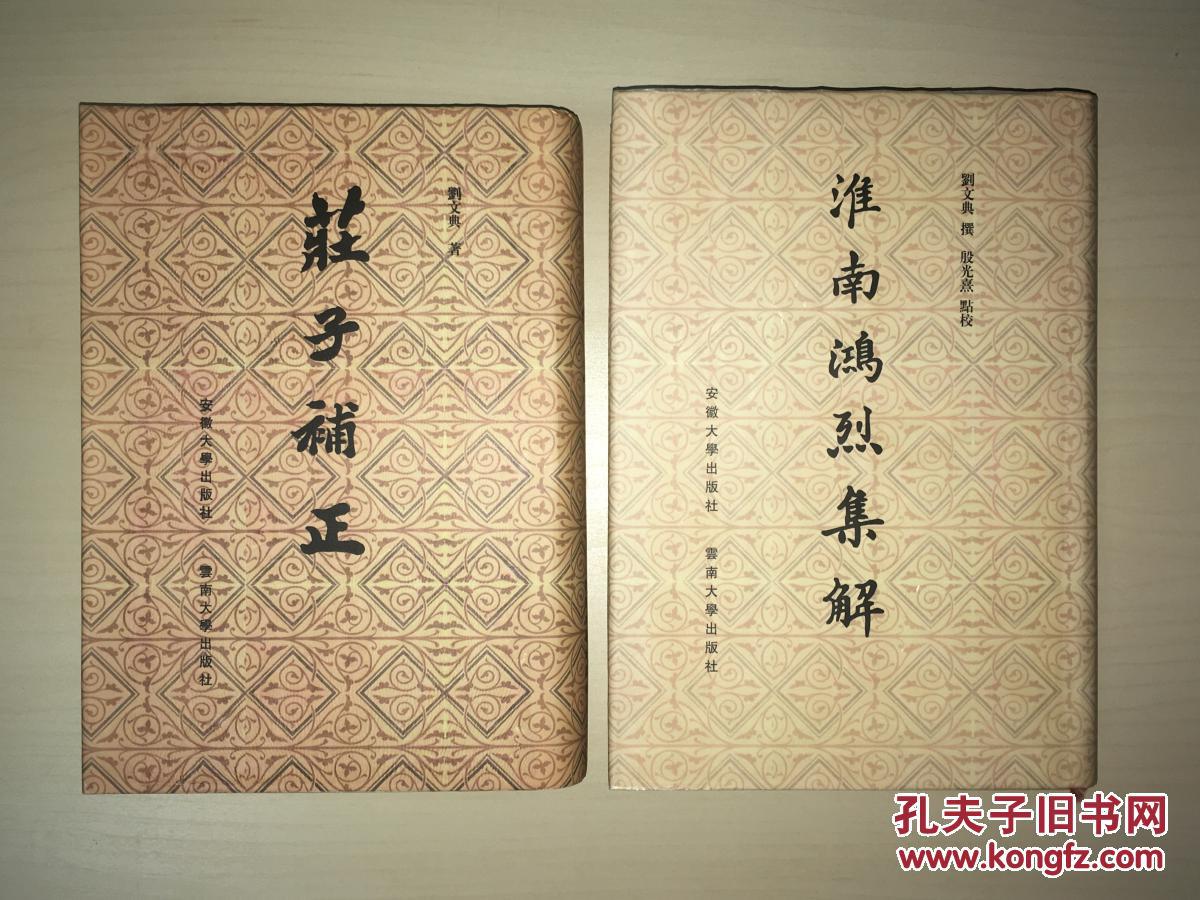 劉文典 著
莊子補正
安徽大學出版社 雲南大學出版社
劉文典 撰 殷光熹 點校
淮南鴻烈集解
安徽大學出版社 雲南大學出版社
孔夫子旧书网
www.kongfz.com